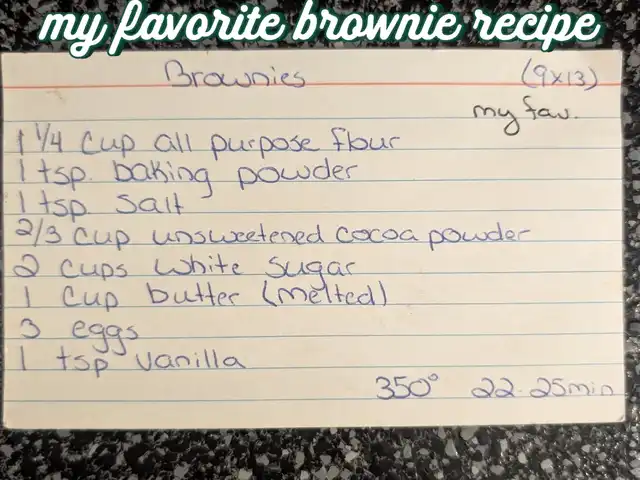 my favorite brownie recipe
Brownies (9x13)
my fav.
1 1/4 cup all purpose flour
1 tsp. baking powder
1 tsp salt
2/3 cup unsweetened cocoa powder
2 cups white sugar
1 cup butter (melted)
3 eggs
1 tsp vanilla
350° 22-25min